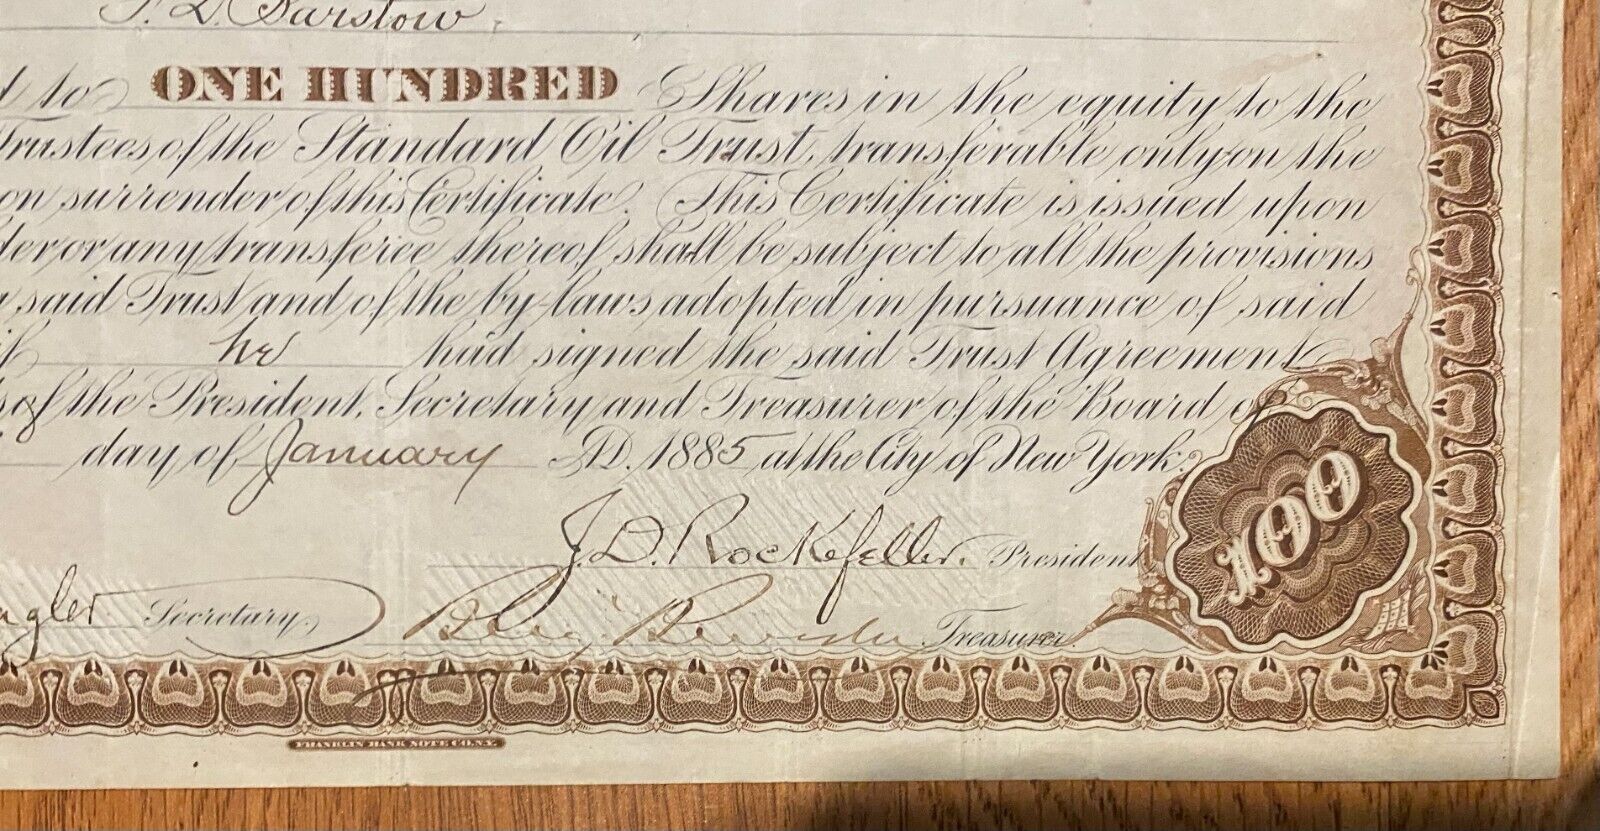 F. D. Barstow
to ONE HUNDRED Shares in the equity to the
Trustees of the Standard Oil Trust, transferable only on the
on surrender of this Certificate. This Certificate is issued upon
der or any transferee thereof shall be subject to all the provisions
said Trust and of the by-laws adopted in pursuance of said
if he had signed the said Trust Agreement
of the President, Secretary and Treasurer of the Board of
day of January A.D. 1885 at the City of New York.
J. D. Rockefeller. President
gler Secretary.
Benj. Brewster Treasurer.
100
FRANKLIN BANK NOTE CO. N.Y.